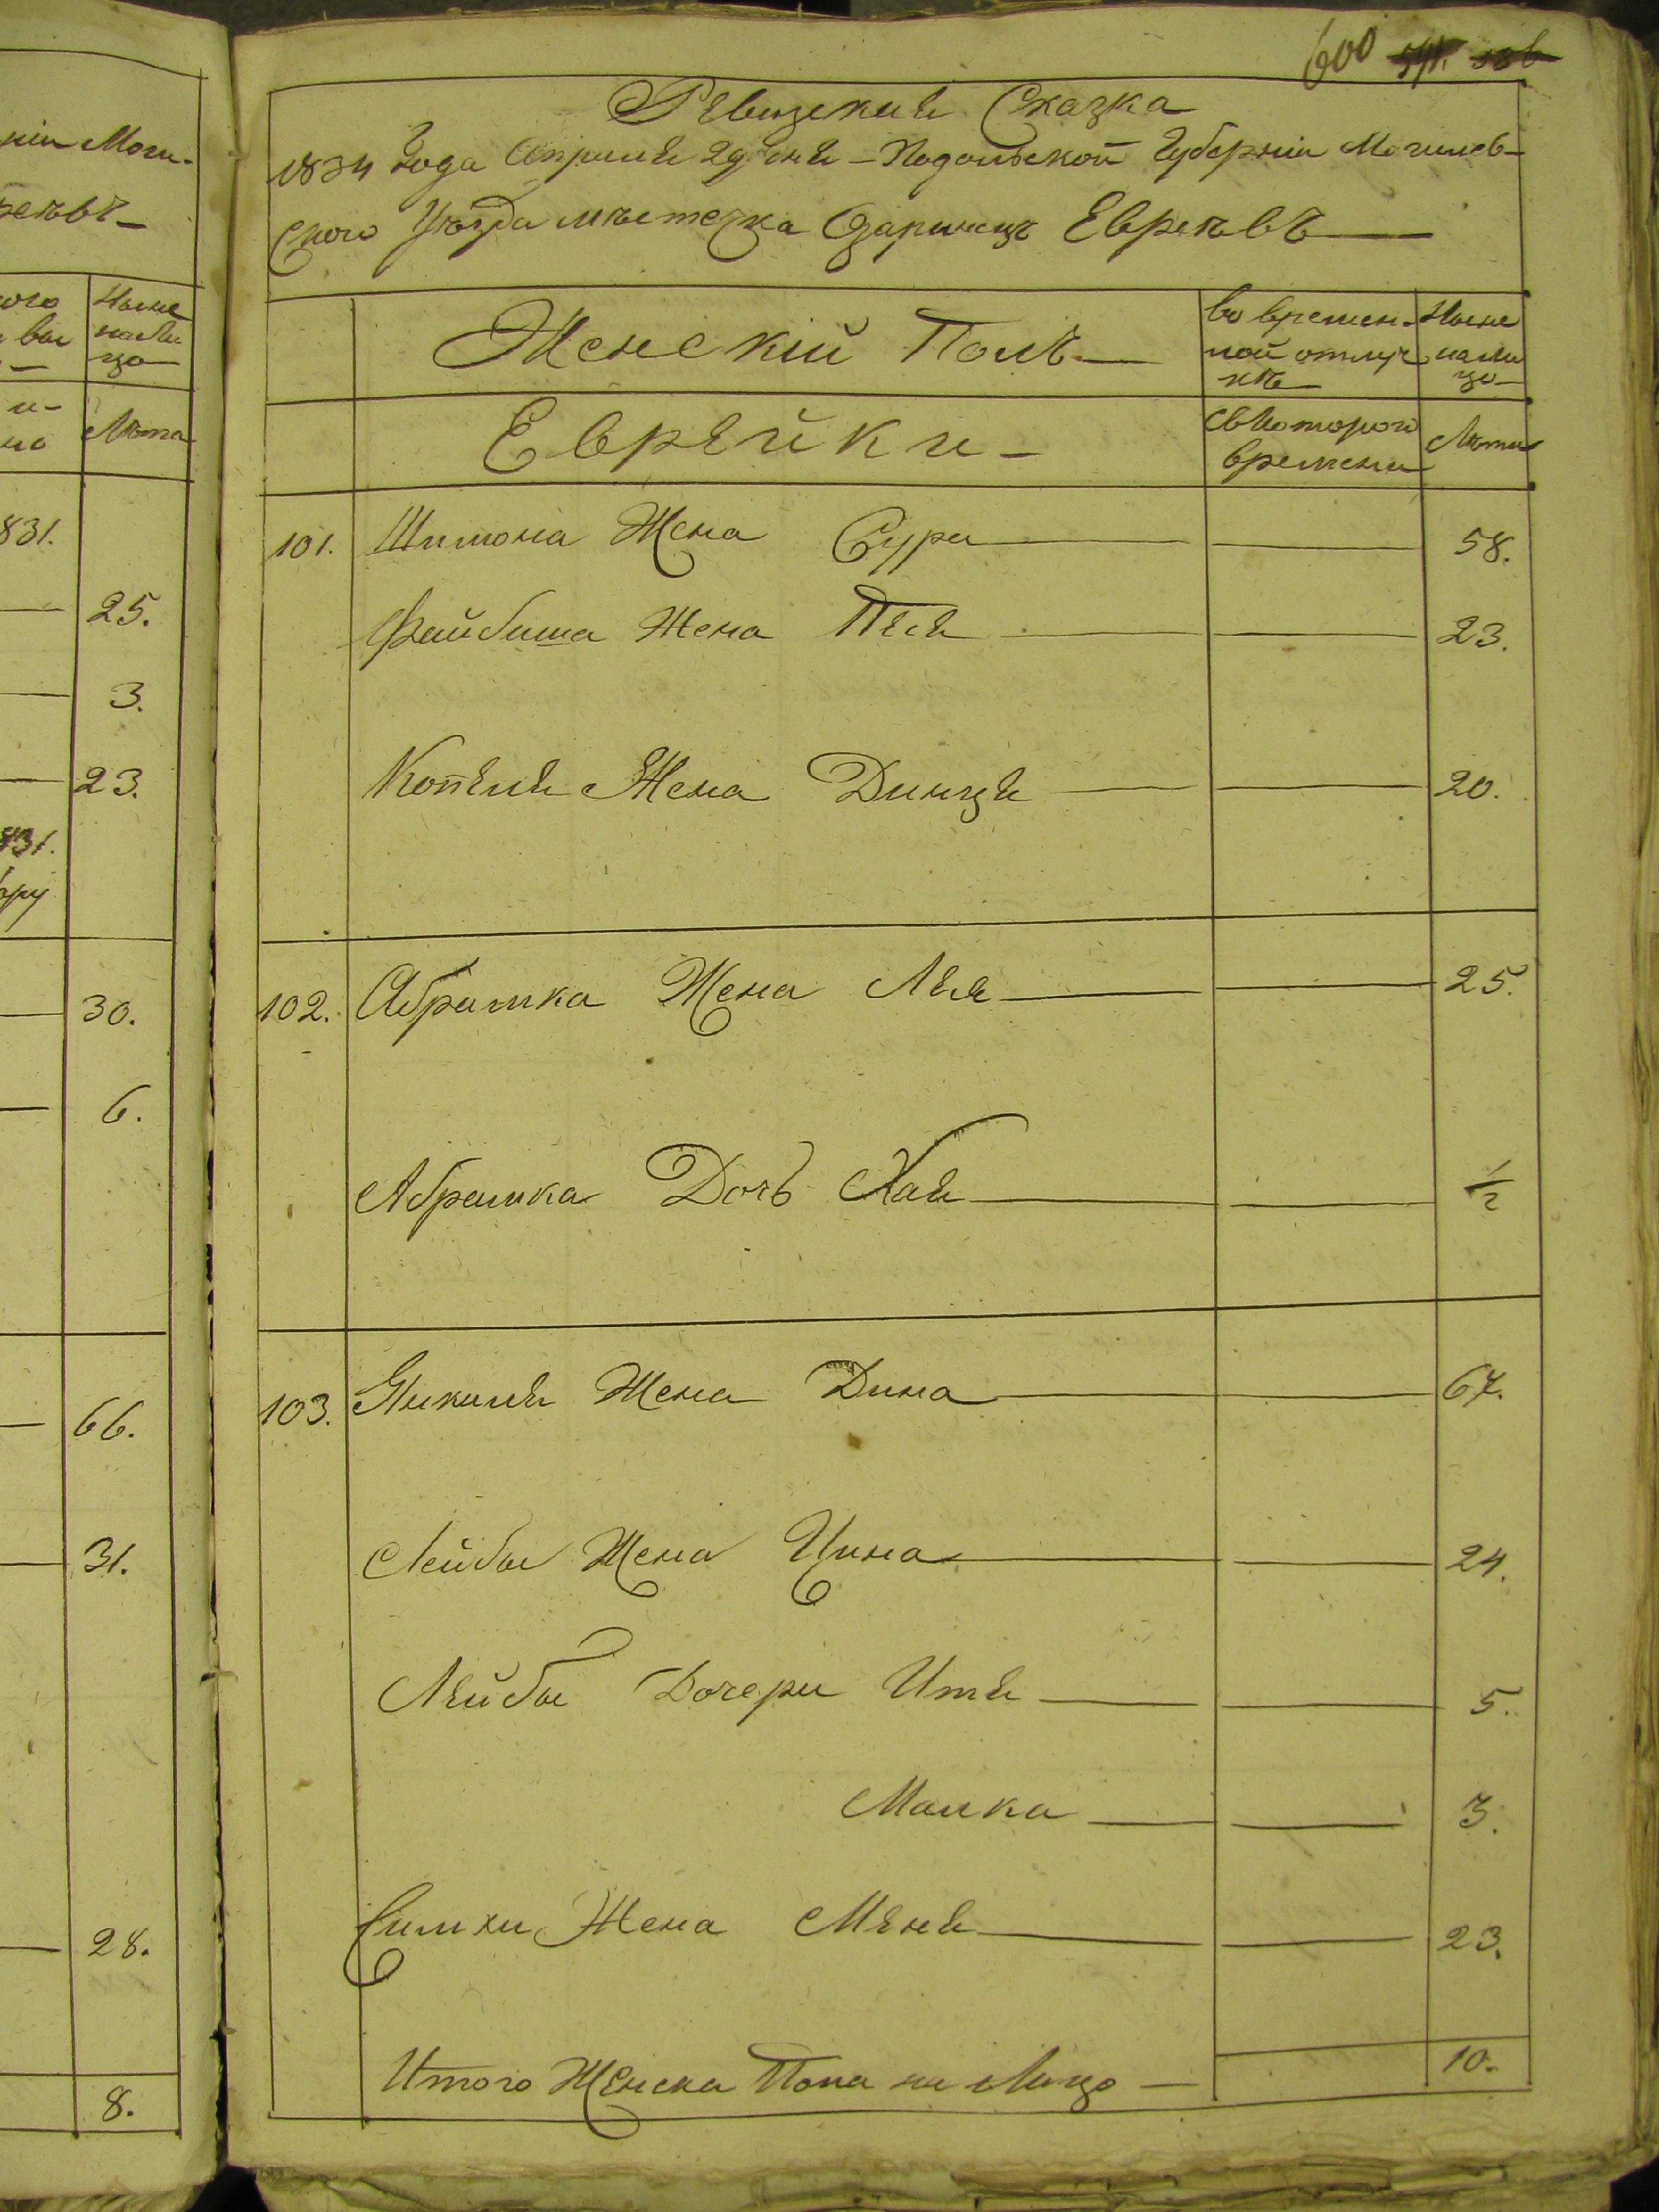 600 591. 586
Ревизская Сказка
1834 Года Апреля 29 дня – Подольской Губерніи Могилев-
ского Уѣзда мѣстечка Озаринецъ Евреѣвъ
Женскій Полъ
во времен-
ной отлуч
кѣ
Ныне
на ли
цо
Еврейки
съ которого
времени
Лѣта
101. Шимона Жена Сура 58.
Файбиша Жена Песя 23.
Копеля Жена Динця 20.
102. Абрамка Жена Лея 25.
Абрамка Дочь Хая 1/2
103. Янкеля Жена Дина 67.
Лейбы Жена Цина 24.
Лейбы Дочери Итя 5.
Малка 3.
Симхи Жена Меня 23.
Итого Женска Пола на Лицо 10.
ніи Моги-
реѣвъ
Ныне
нали
цо
Лѣта
831.
25.
3.
23.
831.
30.
6.
66.
31.
28.
8.